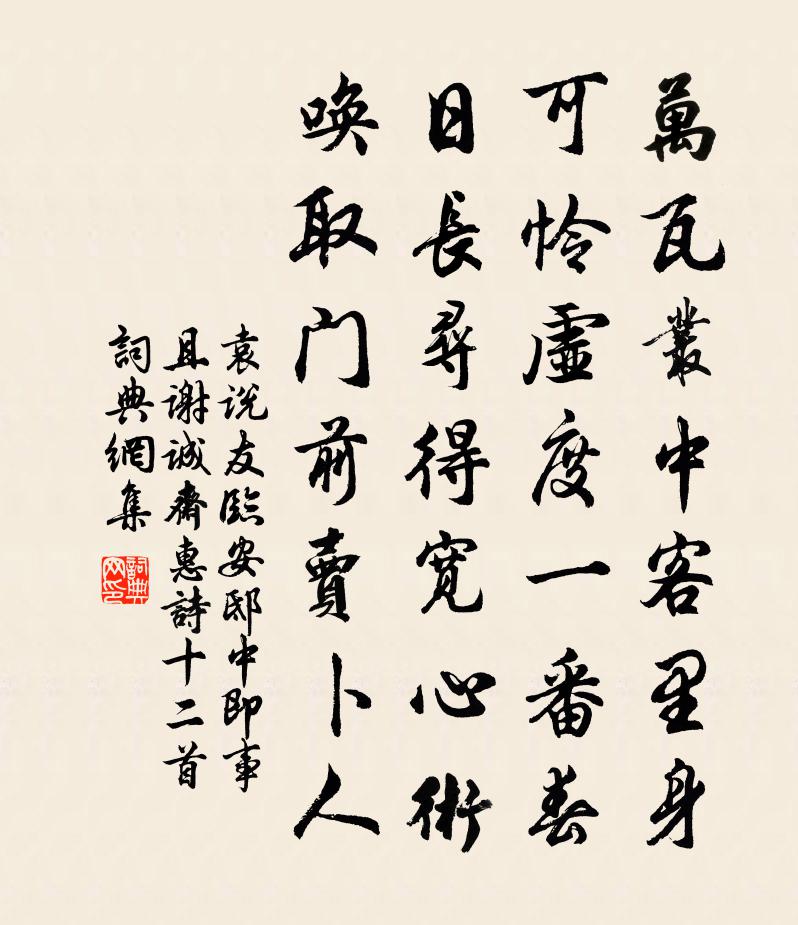 萬瓦叢中客里身
可怜虛度一番春
日長尋得寬心術
喚取門前賣卜人
袁说友臨安邸中即事
且谢诚齋惠詩十二首
詞典網集
詞典网印